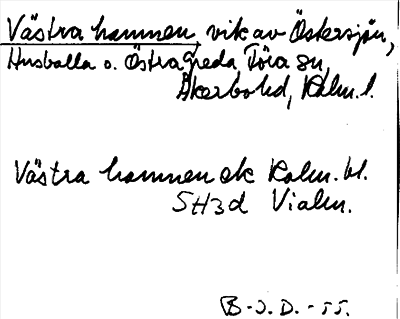 Västra hamnen, vik av Östersjön,
Husvalla o. Östra Greda Föra sn,
Åkerbo hd, Kalm. l.
Västra hamnen ek Kalm. bl.
5H3d Vialm.
B-J.D. - 55.